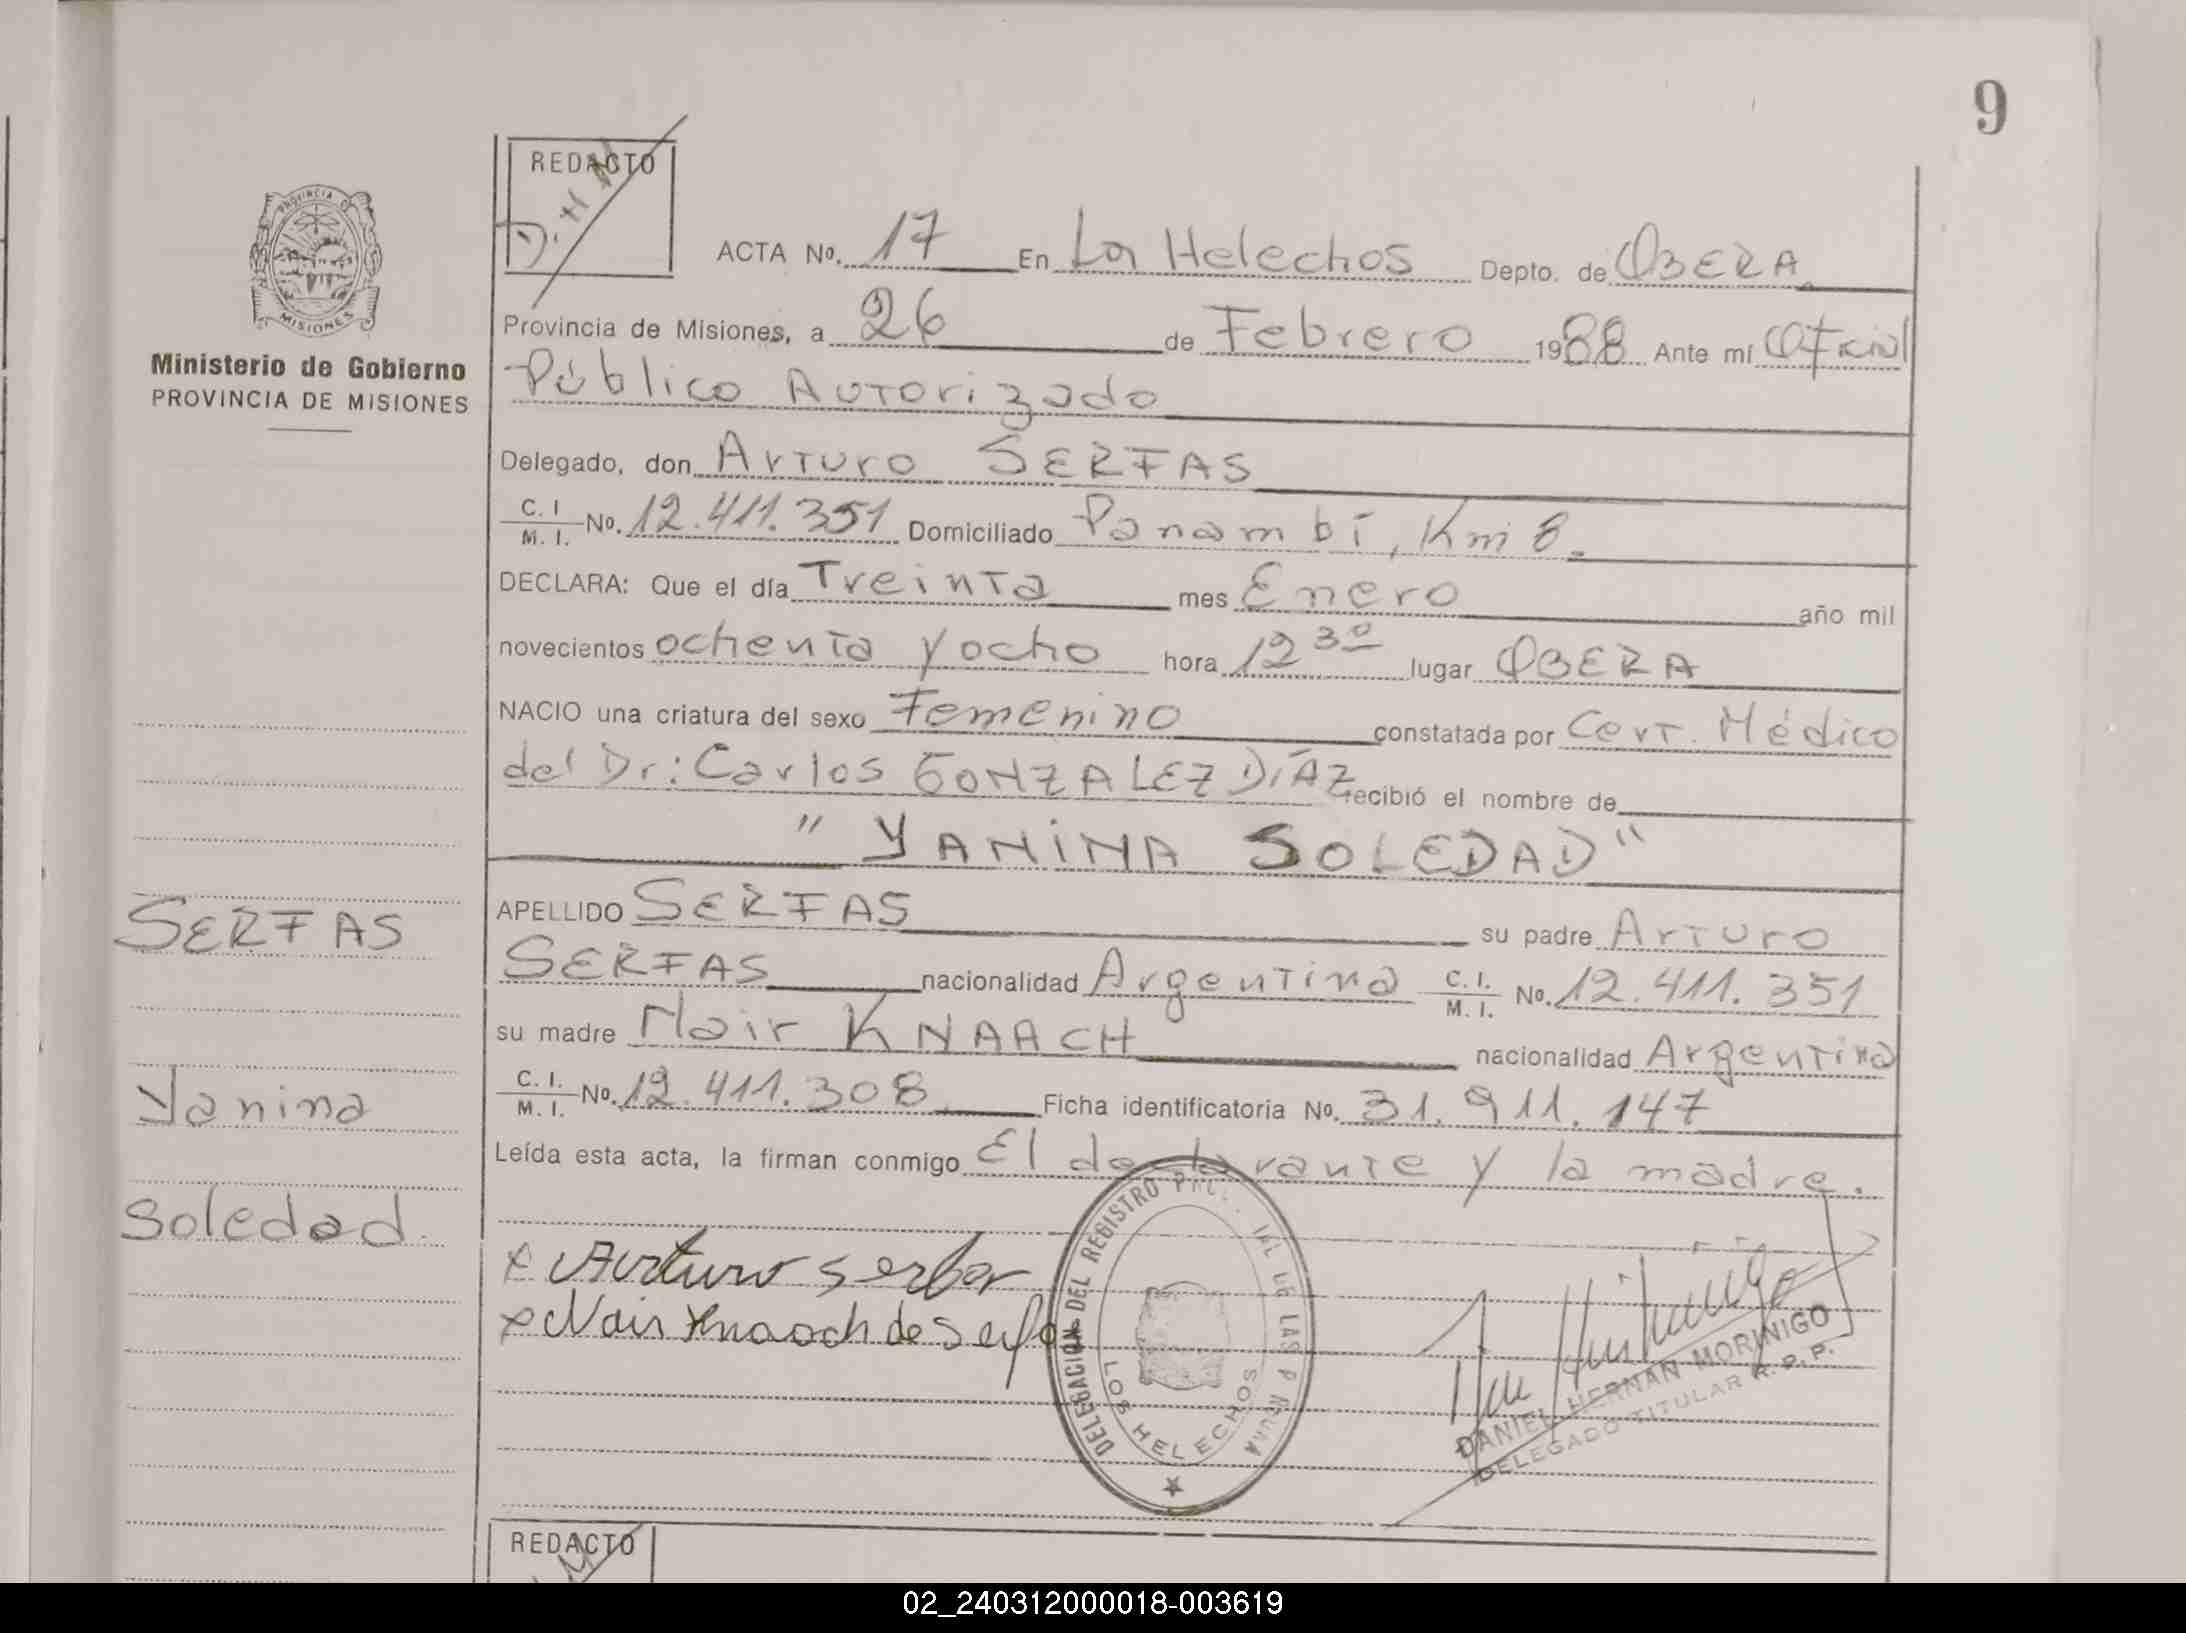 9
REDACTO
D. H. M
PROVINCIA D
MISIONES
Ministerio de Gobierno
PROVINCIA DE MISIONES
ACTA No. 17 En Los Helechos Depto. de OBERA
Provincia de Misiones, a 26 de Febrero 1988 Ante mí Oficial
Público Autorizado
Delegado, don Arturo SERFAS
C. I / M. I. No. 12.411.351 Domiciliado Panambí, Km 8.
DECLARA: Que el día Treinta mes Enero año mil
novecientos ochenta y ocho hora 12 30 lugar OBERA
NACIO una criatura del sexo Femenino constatada por Cert. Médico
del Dr: Carlos GONZALEZ DÍAZ recibió el nombre de
" YANINA SOLEDAD "
APELLIDO SERFAS su padre Arturo
SERFAS nacionalidad Argentina C. I. / M. I. No. 12.411.351
su madre Nair KNAACH nacionalidad Argentina
C. I. / M. I. No. 12.411.308 Ficha identificatoria No. 31.911.147
Leída esta acta, la firman conmigo El declarante y la madre.
SERFAS
Yanina
Soledad
x Arturo Serfas
x Nair Knaach de Serfa
DELEGACION DEL REGISTRO DE LAS
LOS HELECHOS
DANIEL HERNAN MORINIGO
DELEGADO TITULAR R. P. P.
REDACTO
02_240312000018-003619